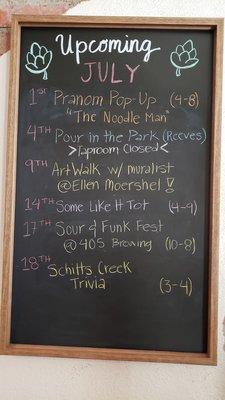 Upcoming
JULY
1ST Pranom Pop-Up (4-8)
"The Noodle Man"
4TH Pour in the Park (Reeves)
>Taproom Closed<
9TH ArtWalk w/ muralist
@Ellen Moershel!
14TH Some Like it Tot (4-9)
17TH Sour & Funk Fest
@405 Brewing (10-8)
18TH Schitts Creek
Trivia (3-4)